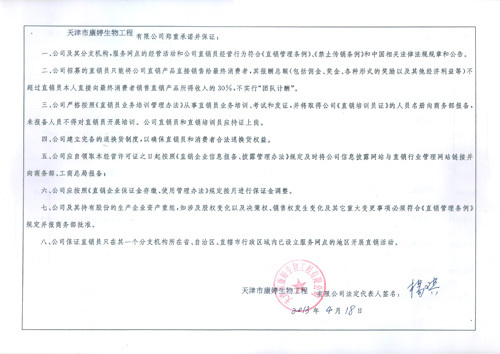 天津市康婷生物工程有限公司郑重承诺并保证：
一、公司及其分支机构、服务网点的经营活动和公司直销员经营行为符合《直销管理条例》、《禁止传销条例》和中国相关法律法规规章和公告。
二、公司招募的直销员只能将公司直销产品直接销售给最终消费者，其报酬总额（包括佣金、奖金、各种形式的奖励以及其他经济利益等）不
超过直销员本人直接向最终消费者销售直销产品所得收入的30%，不实行“团队计酬”。
三、公司严格按照《直销员业务培训管理办法》从事直销员业务培训、考试和发证，并将取得公司《直销培训员证》的人员名册向商务部报备，
未报备人员不得对直销员开展培训。公司直销员和直销培训员应持证上岗。
四、公司建立完备的退换货制度，以确保直销员和消费者合法退换货权益。
五、公司应自领取本经营许可证之日起按照《直销企业信息报备、披露管理办法》规定及时将公司信息披露网站与直销行业管理网站链接并
向商务部、工商总局报备；
六、公司应按照《直销企业保证金存缴、使用管理办法》规定按月进行保证金调整。
七、公司及其持有股份的生产企业资产重组，如涉及股权变化以及决策权、销售权发生变化及其它重大变更事项必须符合《直销管理条例》
规定并报商务部批准。
八、公司保证直销员只在其一个分支机构所在省、自治区、直辖市行政区域内已设立服务网点的地区开展直销活动。
天津市康婷生物工程有限公司法定代表人签名：
2013年4月18日